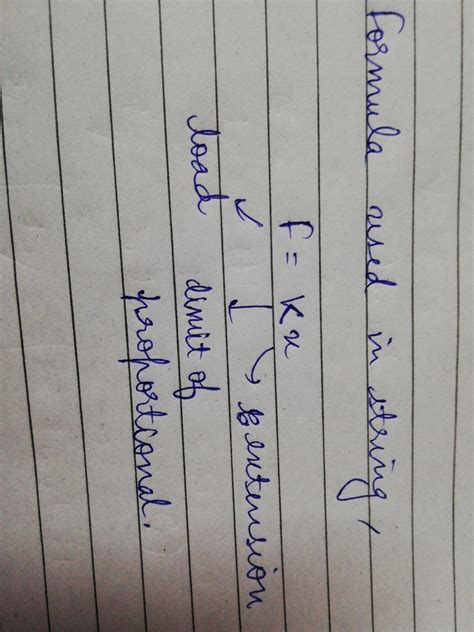 formula used in string,
F = Kx
load limit of extension
proportional.